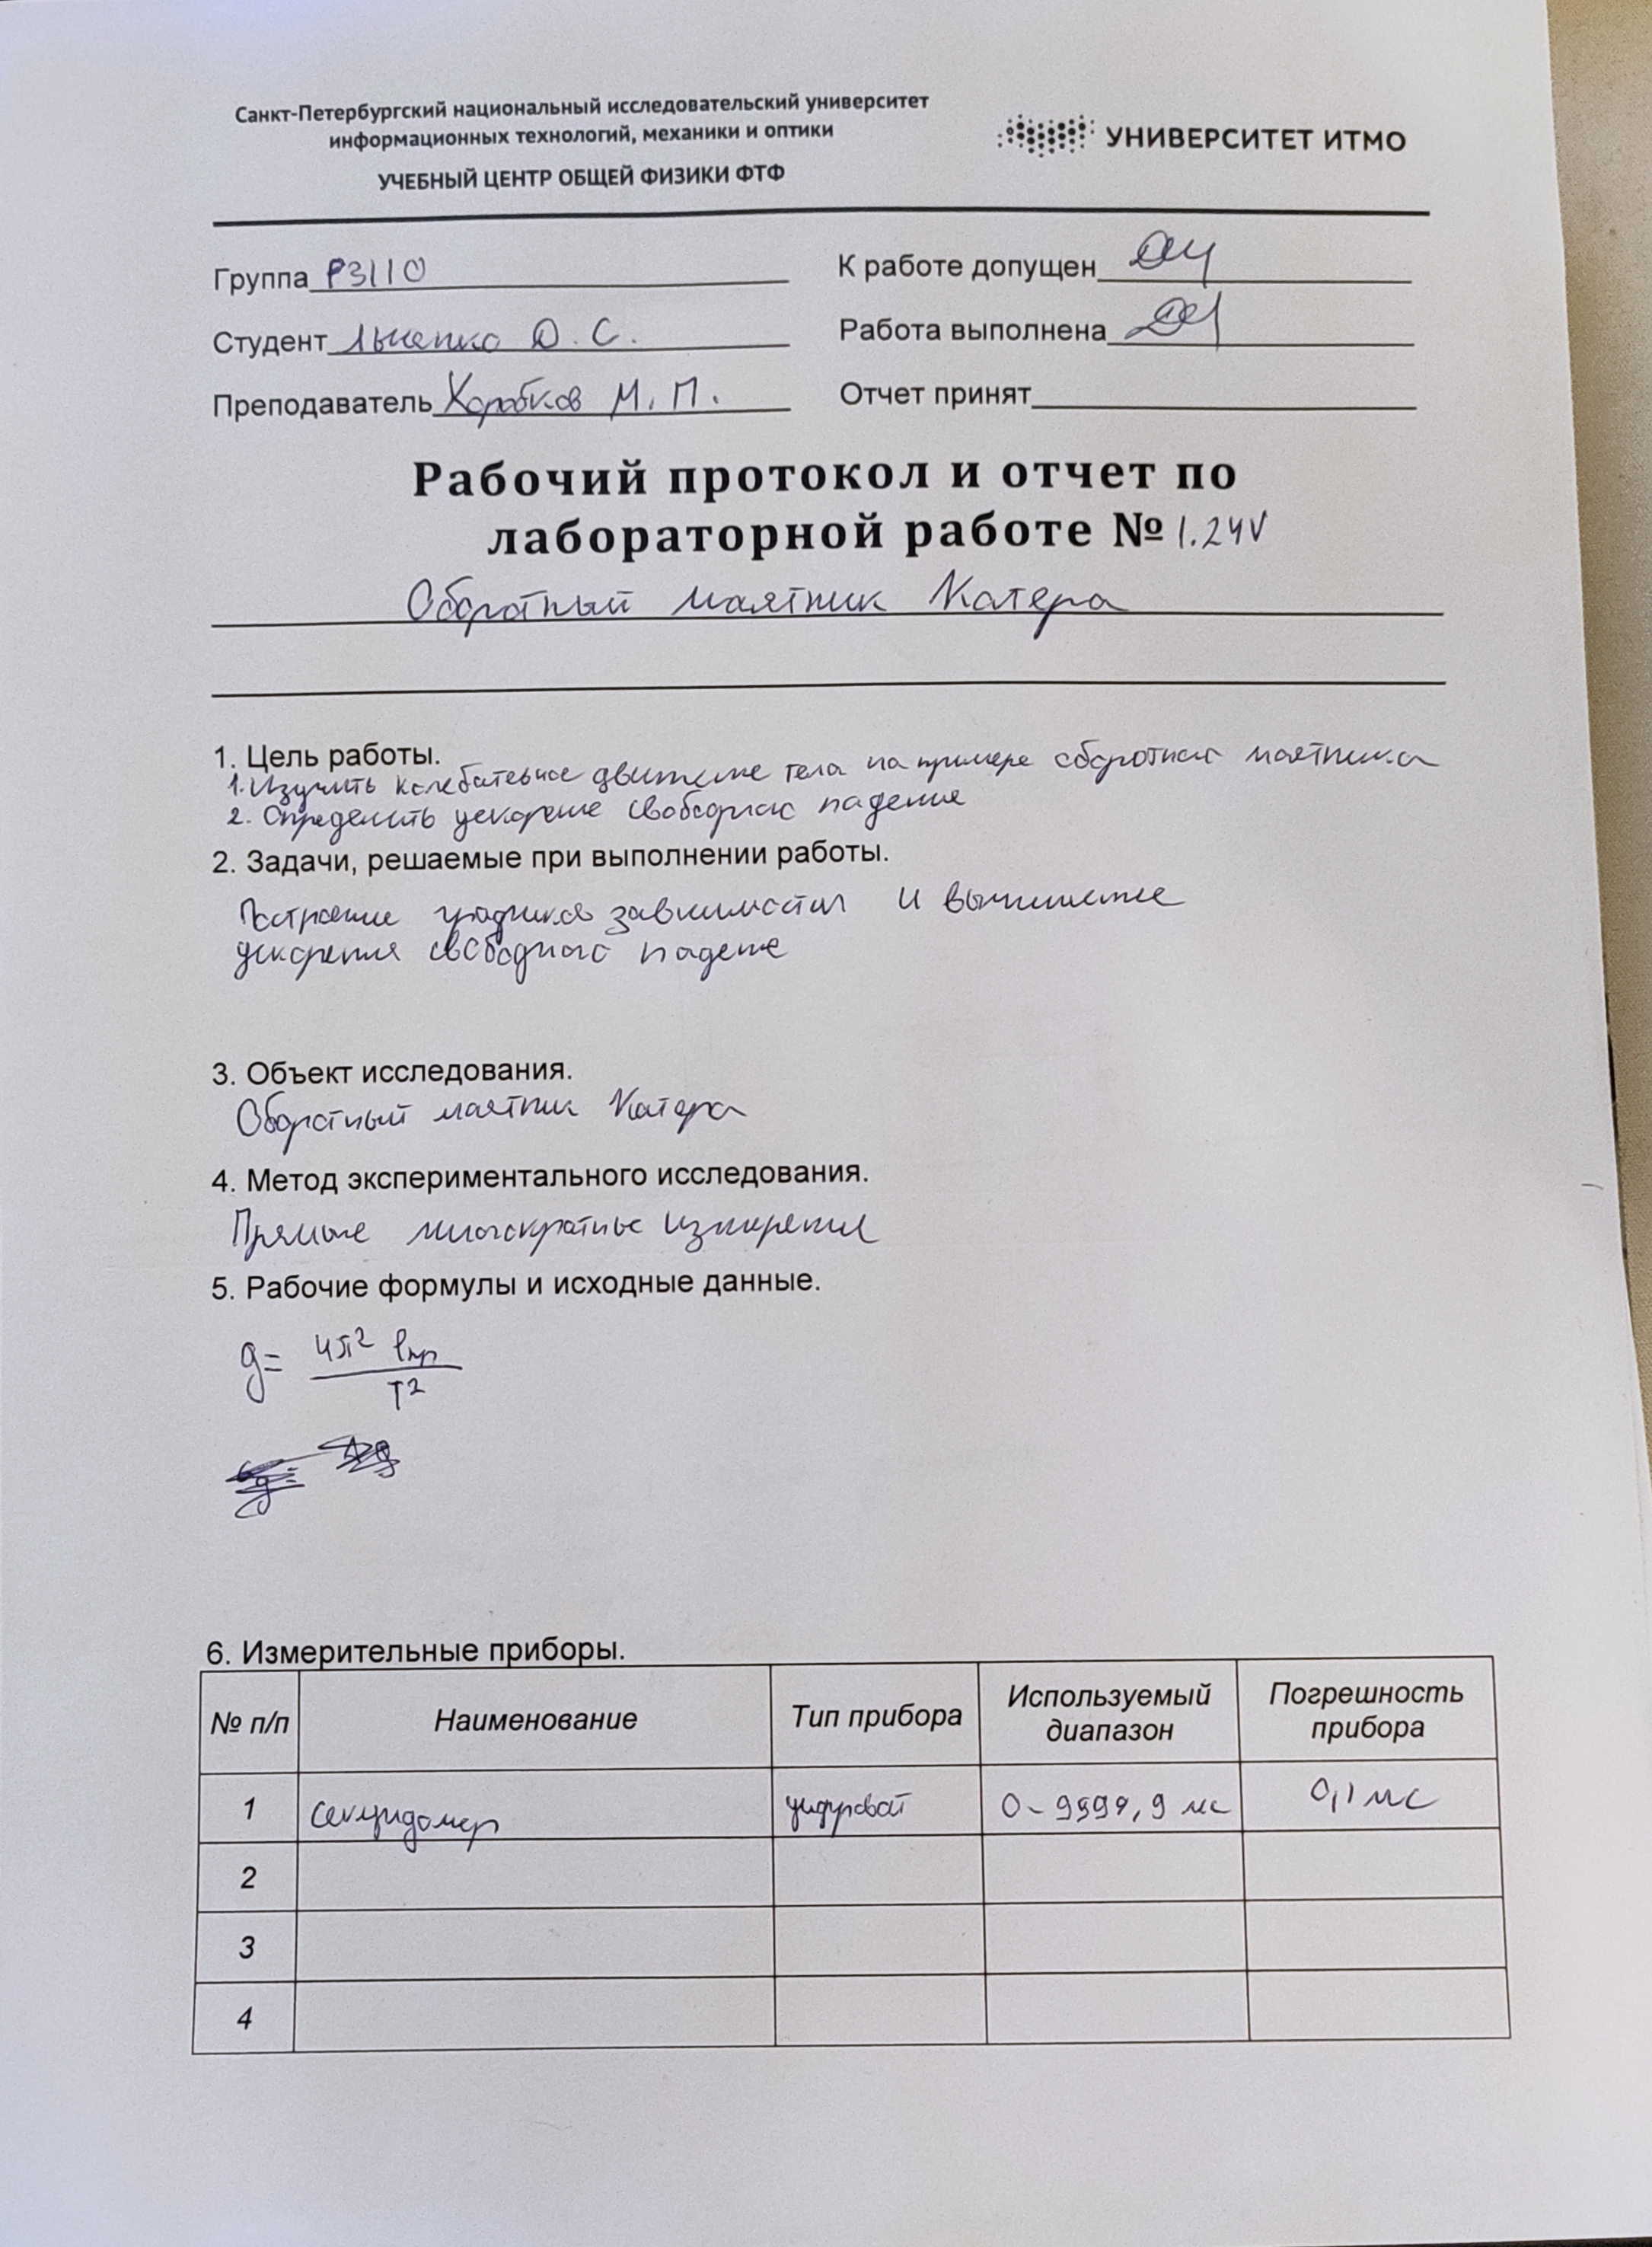 Санкт-Петербургский национальный исследовательский университет
информационных технологий, механики и оптики
УЧЕБНЫЙ ЦЕНТР ОБЩЕЙ ФИЗИКИ ФТФ
УНИВЕРСИТЕТ ИТМО
Группа Р3110
К работе допущен
Студент Д. С.
Работа выполнена
Преподаватель Коробков М. П.
Отчет принят
Рабочий протокол и отчет по
лабораторной работе № 1.24V
Оборотный маятник Катера
1. Цель работы.
1. Изучить колебательное движение тела на примере оборотного маятника
2. Определить ускорение свободного падения
2. Задачи, решаемые при выполнении работы.
Построение графиков зависимости и вычисление
ускорения свободного падения
3. Объект исследования.
Оборотный маятник Катера
4. Метод экспериментального исследования.
Прямые многократные измерения
5. Рабочие формулы и исходные данные.
g = 4π² lпр / T²
6. Измерительные приборы.
№ п/п Наименование Тип прибора Используемый диапазон Погрешность прибора
1 секундомер цифровой 0 - 9999,9 мс 0,1 мс
2
3
4